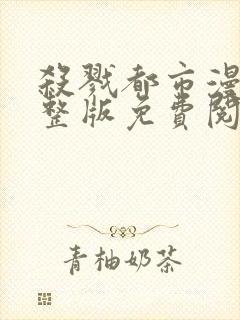 殺戮都市漫
整版免費閱
青柚奶茶